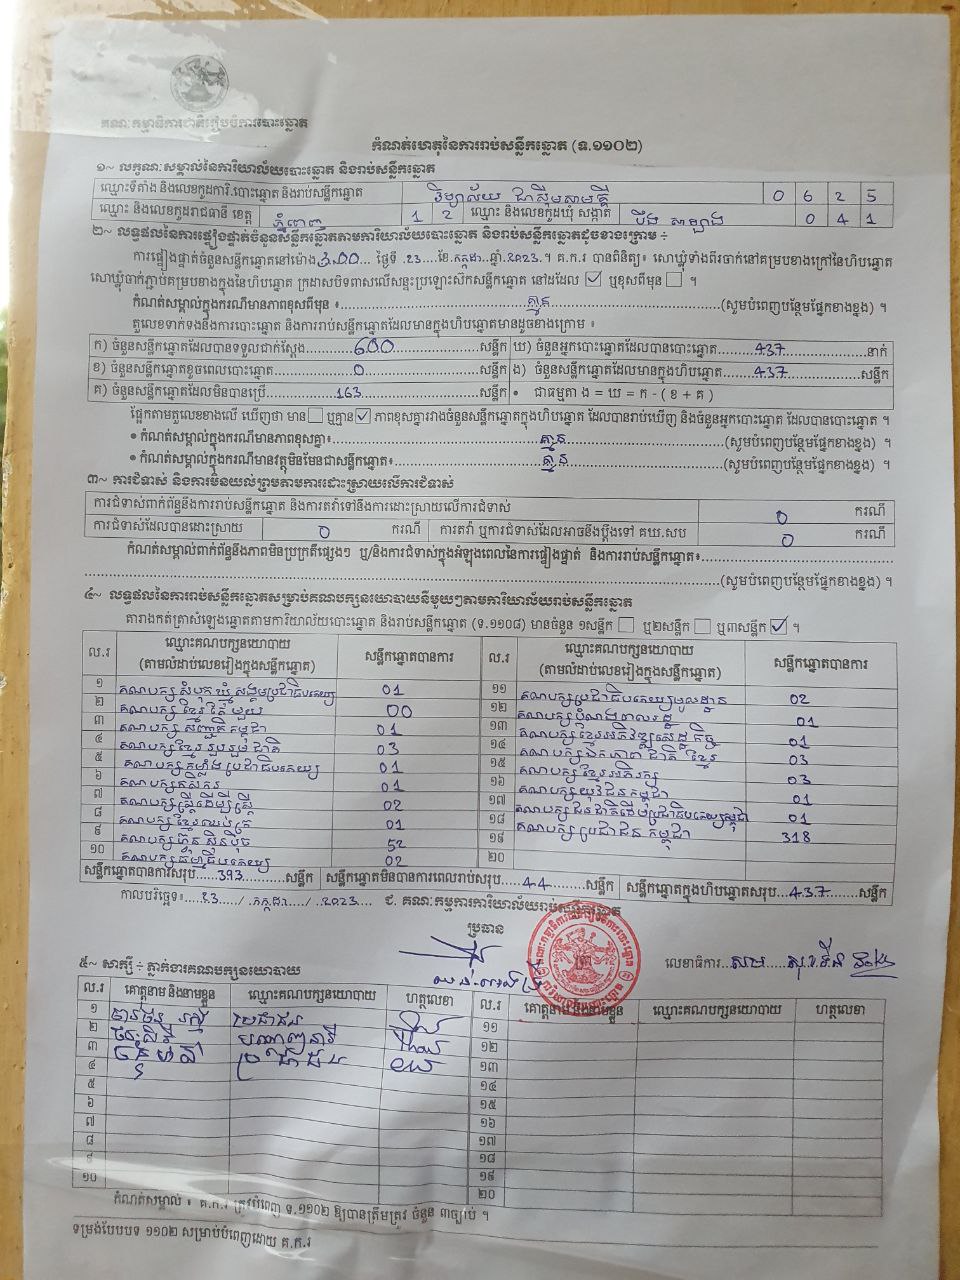 គណៈកម្មាធិការជាតិរៀបចំការបោះឆ្នោត
កំណត់ហេតុនៃការរាប់សន្លឹកឆ្នោត (ទ.១១០២)
១~ លក្ខណៈសម្គាល់នៃការិយាល័យបោះឆ្នោត និងរាប់សន្លឹកឆ្នោត
ឈ្មោះទីតាំង និងលេខកូដការិ.បោះឆ្នោត និងរាប់សន្លឹកឆ្នោត វិទ្យាល័យ ជាស៊ីមសាមគ្គី 0 6 2 5
ឈ្មោះ និងលេខកូដរាជធានី ខេត្ត ភ្នំពេញ 1 2 ឈ្មោះ និងលេខកូដឃុំ សង្កាត់ បឹង សាឡាង 0 4 1
២~ លទ្ធផលនៃការផ្ទៀងផ្ទាត់ចំនួនសន្លឹកឆ្នោតតាមការិយាល័យបោះឆ្នោត និងរាប់សន្លឹកឆ្នោតដូចខាងក្រោម ÷
ការផ្ទៀងផ្ទាត់ចំនួនសន្លឹកឆ្នោតនៅម៉ោង 3:00 ថ្ងៃទី 23 ខែ កក្កដា ឆ្នាំ 2023 ។ គ.ក.រ បានពិនិត្យ៖ សោឃ្លុំទាំងពីរចាក់នៅគម្របខាងក្រៅនៃហិបឆ្នោត
សោឃ្លុំចាក់ភ្ជាប់គម្របខាងក្នុងនៃហិបឆ្នោត ក្រដាសបិទពាសលើសន្ទះប្រឡោះស៊កសន្លឹកឆ្នោត នៅដដែល ☑ ឬខុសពីមុន ☐ ។
កំណត់សម្គាល់ក្នុងករណីមានភាពខុសពីមុន ៖ គ្មាន (សូមបំពេញបន្ថែមផ្នែកខាងខ្នង) ។
តួលេខទាក់ទងនឹងការបោះឆ្នោត និងការរាប់សន្លឹកឆ្នោតដែលមានក្នុងហិបឆ្នោតមានដូចខាងក្រោម ៖
ក) ចំនួនសន្លឹកឆ្នោតដែលបានទទួលជាក់ស្ដែង 600 សន្លឹក ឃ) ចំនួនអ្នកបោះឆ្នោតដែលបានបោះឆ្នោត 437 នាក់
ខ) ចំនួនសន្លឹកឆ្នោតខូចពេលបោះឆ្នោត 0 សន្លឹក ង) ចំនួនសន្លឹកឆ្នោតដែលមានក្នុងហិបឆ្នោត 437 សន្លឹក
គ) ចំនួនសន្លឹកឆ្នោតដែលមិនបានប្រើ 163 សន្លឹក • ជាធម្មតា ង = ឃ = ក - ( ខ + គ )
ផ្អែកតាមតួលេខខាងលើ ឃើញថា មាន ☐ ឬគ្មាន ☑ ភាពខុសគ្នារវាងចំនួនសន្លឹកឆ្នោតក្នុងហិបឆ្នោត ដែលបានរាប់ឃើញ និងចំនួនអ្នកបោះឆ្នោត ដែលបានបោះឆ្នោត ។
• កំណត់សម្គាល់ក្នុងករណីមានភាពខុសគ្នា៖ គ្មាន (សូមបំពេញបន្ថែមផ្នែកខាងខ្នង) ។
• កំណត់សម្គាល់ក្នុងករណីមានវត្ថុមិនមែនជាសន្លឹកឆ្នោត៖ គ្មាន (សូមបំពេញបន្ថែមផ្នែកខាងខ្នង) ។
៣~ ការជំទាស់ និងការមិនយល់ព្រមតាមការដោះស្រាយលើការជំទាស់
ការជំទាស់ពាក់ព័ន្ធនឹងការរាប់សន្លឹកឆ្នោត និងការតវ៉ាទៅនឹងការដោះស្រាយលើការជំទាស់ 0 ករណី
ការជំទាស់ដែលបានដោះស្រាយ 0 ករណី ការតវ៉ា ឬការជំទាស់ដែលអាចនឹងប្ដឹងទៅ គឃ.សប 0 ករណី
កំណត់សម្គាល់ពាក់ព័ន្ធនឹងភាពមិនប្រក្រតីផ្សេងៗ ឬ/និងការជំទាស់ក្នុងអំឡុងពេលនៃការផ្ទៀងផ្ទាត់ និងការរាប់សន្លឹកឆ្នោត៖
(សូមបំពេញបន្ថែមផ្នែកខាងខ្នង) ។
៤~ លទ្ធផលនៃការរាប់សន្លឹកឆ្នោតសម្រាប់គណបក្សនយោបាយនីមួយៗតាមការិយាល័យរាប់សន្លឹកឆ្នោត
តារាងកត់ត្រាសំឡេងឆ្នោតតាមការិយាល័យបោះឆ្នោត និងរាប់សន្លឹកឆ្នោត (ទ.១១០៨) មានចំនួន ១សន្លឹក ☐ ឬ២សន្លឹក ☐ ឬ៣សន្លឹក ☑ ។
ល.រ ឈ្មោះគណបក្សនយោបាយ (តាមលំដាប់លេខរៀងក្នុងសន្លឹកឆ្នោត) សន្លឹកឆ្នោតបានការ ល.រ ឈ្មោះគណបក្សនយោបាយ (តាមលំដាប់លេខរៀងក្នុងសន្លឹកឆ្នោត) សន្លឹកឆ្នោតបានការ
១ គណបក្ស សំបុកឃ្មុំសង្គមប្រជាធិបតេយ្យ 01
២ គណបក្ស ខ្មែរតែមួយ 00
៣ គណបក្ស សញ្ជាតិកម្ពុជា 01
៤ គណបក្សខ្មែររួបរួមជាតិ 03
៥ គណបក្សកម្លាំងប្រជាធិបតេយ្យ 01
៦ គណបក្សកសិករ 01
៧ គណបក្សស្ត្រីដើម្បីស្ត្រី 02
៨ គណបក្សខ្មែរឈប់ក្រ 01
៩ គណបក្សហ៊្វុនស៊ិនប៉ិច 52
១០ គណបក្សធម្មាធិបតេយ្យ 02
១១ គណបក្សប្រជាធិបតេយ្យមូលដ្ឋាន 02
១២ គណបក្សបំណងពលរដ្ឋ 01
១៣ គណបក្សខ្មែរអភិវឌ្ឍសេដ្ឋកិច្ច 01
១៤ គណបក្សឯកភាពជាតិខ្មែរ 03
១៥ គណបក្សខ្មែរអភិរក្ស 03
១៦ គណបក្សយុវជនកម្ពុជា 01
១៧ គណបក្សជនជាតិដើមប្រជាធិបតេយ្យកម្ពុជា 01
១៨ គណបក្សប្រជាជនកម្ពុជា 318
១៩
២០
សន្លឹកឆ្នោតបានការសរុប 393 សន្លឹក សន្លឹកឆ្នោតមិនបានការពេលរាប់សរុប 44 សន្លឹក សន្លឹកឆ្នោតក្នុងហិបឆ្នោតសរុប 437 សន្លឹក
កាលបរិច្ឆេទ៖ 23 / កក្កដា / 2023 ជ. គណៈកម្មការការិយាល័យរាប់សន្លឹកឆ្នោត
ប្រធាន
លេខាធិការ
៥~ សាក្សី ÷ ភ្នាក់ងារគណបក្សនយោបាយ
ល.រ គោត្តនាម និងនាមខ្លួន ឈ្មោះគណបក្សនយោបាយ ហត្ថលេខា ល.រ គោត្តនាម និងនាមខ្លួន ឈ្មោះគណបក្សនយោបាយ ហត្ថលេខា
១ ប្រជាជន ១១
២ ១២
៣ ប្រជាជន ១៣
៤ ១៤
៥ ១៥
៦ ១៦
៧ ១៧
៨ ១៨
៩ ១៩
១០ ២០
កំណត់សម្គាល់ ៖ គ.ក.រ ត្រូវបំពេញ ទ.១១០២ ឱ្យបានត្រឹមត្រូវ ចំនួន ៣ច្បាប់ ។
ទម្រង់បែបបទ ១១០២ សម្រាប់បំពេញដោយ គ.ក.រ